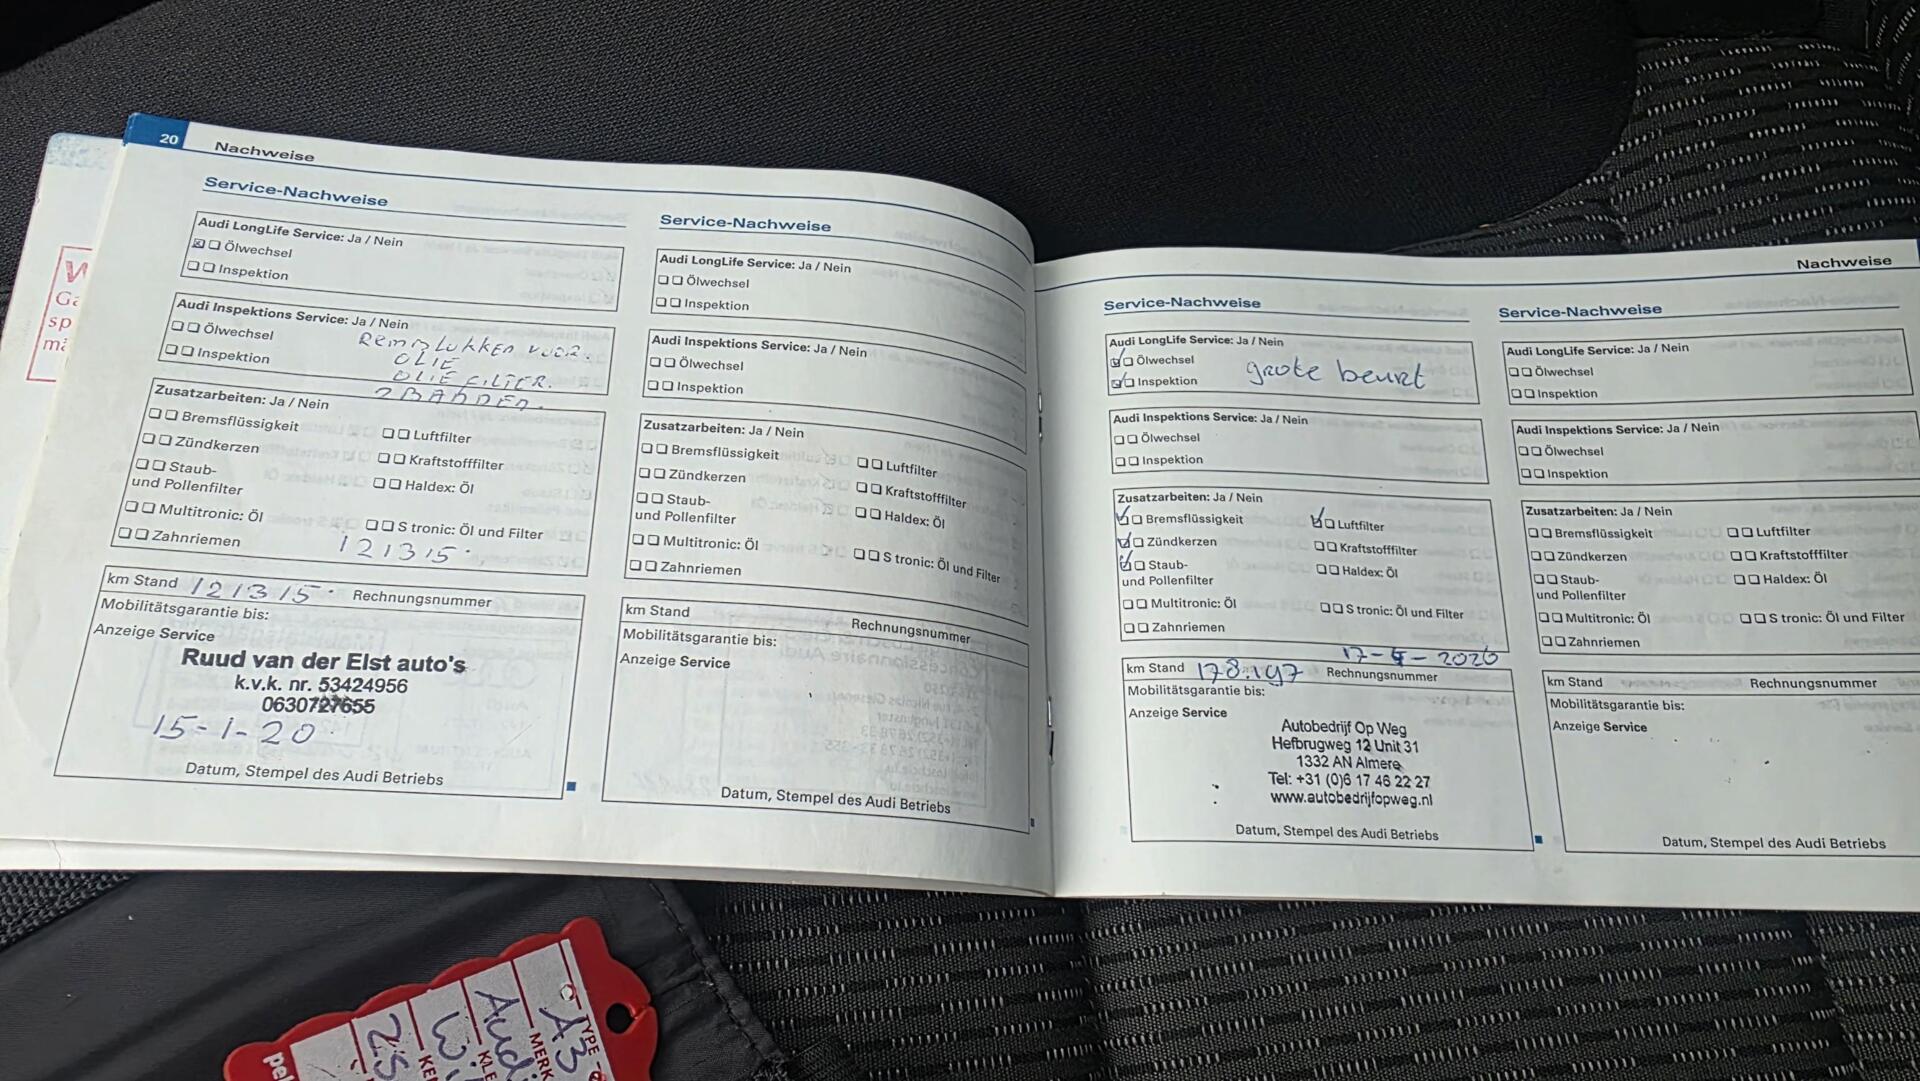 20
Nachweise
Service-Nachweise
Audi LongLife Service: Ja / Nein
Ölwechsel
Inspektion
Audi Inspektions Service: Ja / Nein
Ölwechsel
Inspektion
REMBLOKKEN VOOR.
OLIE
OLIE FILTER.
2 BANDEN.
Zusatzarbeiten: Ja / Nein
Bremsflüssigkeit
Luftfilter
Zündkerzen
Kraftstofffilter
Staub-
und Pollenfilter
Haldex: Öl
Multitronic: Öl
S tronic: Öl und Filter
Zahnriemen
121315.
km Stand 121315. Rechnungsnummer
Mobilitätsgarantie bis:
Anzeige Service
Ruud van der Elst auto's
k.v.k. nr. 53424956
0630727655
15-1-20.
Datum, Stempel des Audi Betriebs
Service-Nachweise
Audi LongLife Service: Ja / Nein
Ölwechsel
Inspektion
Audi Inspektions Service: Ja / Nein
Ölwechsel
Inspektion
Zusatzarbeiten: Ja / Nein
Bremsflüssigkeit
Luftfilter
Zündkerzen
Kraftstofffilter
Staub-
und Pollenfilter
Haldex: Öl
Multitronic: Öl
S tronic: Öl und Filter
Zahnriemen
km Stand
Rechnungsnummer
Mobilitätsgarantie bis:
Anzeige Service
Datum, Stempel des Audi Betriebs
Nachweise
Service-Nachweise
Audi LongLife Service: Ja / Nein
Ölwechsel
Inspektion
grote beurt
Audi Inspektions Service: Ja / Nein
Ölwechsel
Inspektion
Zusatzarbeiten: Ja / Nein
Bremsflüssigkeit
Luftfilter
Zündkerzen
Kraftstofffilter
Staub-
und Pollenfilter
Haldex: Öl
Multitronic: Öl
S tronic: Öl und Filter
Zahnriemen
km Stand 178.197 Rechnungsnummer
Mobilitätsgarantie bis:
Anzeige Service
Autobedrijf Op Weg
Hefbrugweg 12 Unit 31
1332 AN Almere
Tel: +31 (0)6 17 46 22 27
www.autobedrijfopweg.nl
Datum, Stempel des Audi Betriebs
Service-Nachweise
Audi LongLife Service: Ja / Nein
Ölwechsel
Inspektion
Audi Inspektions Service: Ja / Nein
Ölwechsel
Inspektion
Zusatzarbeiten: Ja / Nein
Bremsflüssigkeit
Luftfilter
Zündkerzen
Kraftstofffilter
Staub-
und Pollenfilter
Haldex: Öl
Multitronic: Öl
S tronic: Öl und Filter
Zahnriemen
km Stand
Rechnungsnummer
Mobilitätsgarantie bis:
Anzeige Service
Datum, Stempel des Audi Betriebs
TYPE
A3
MERK
Audi